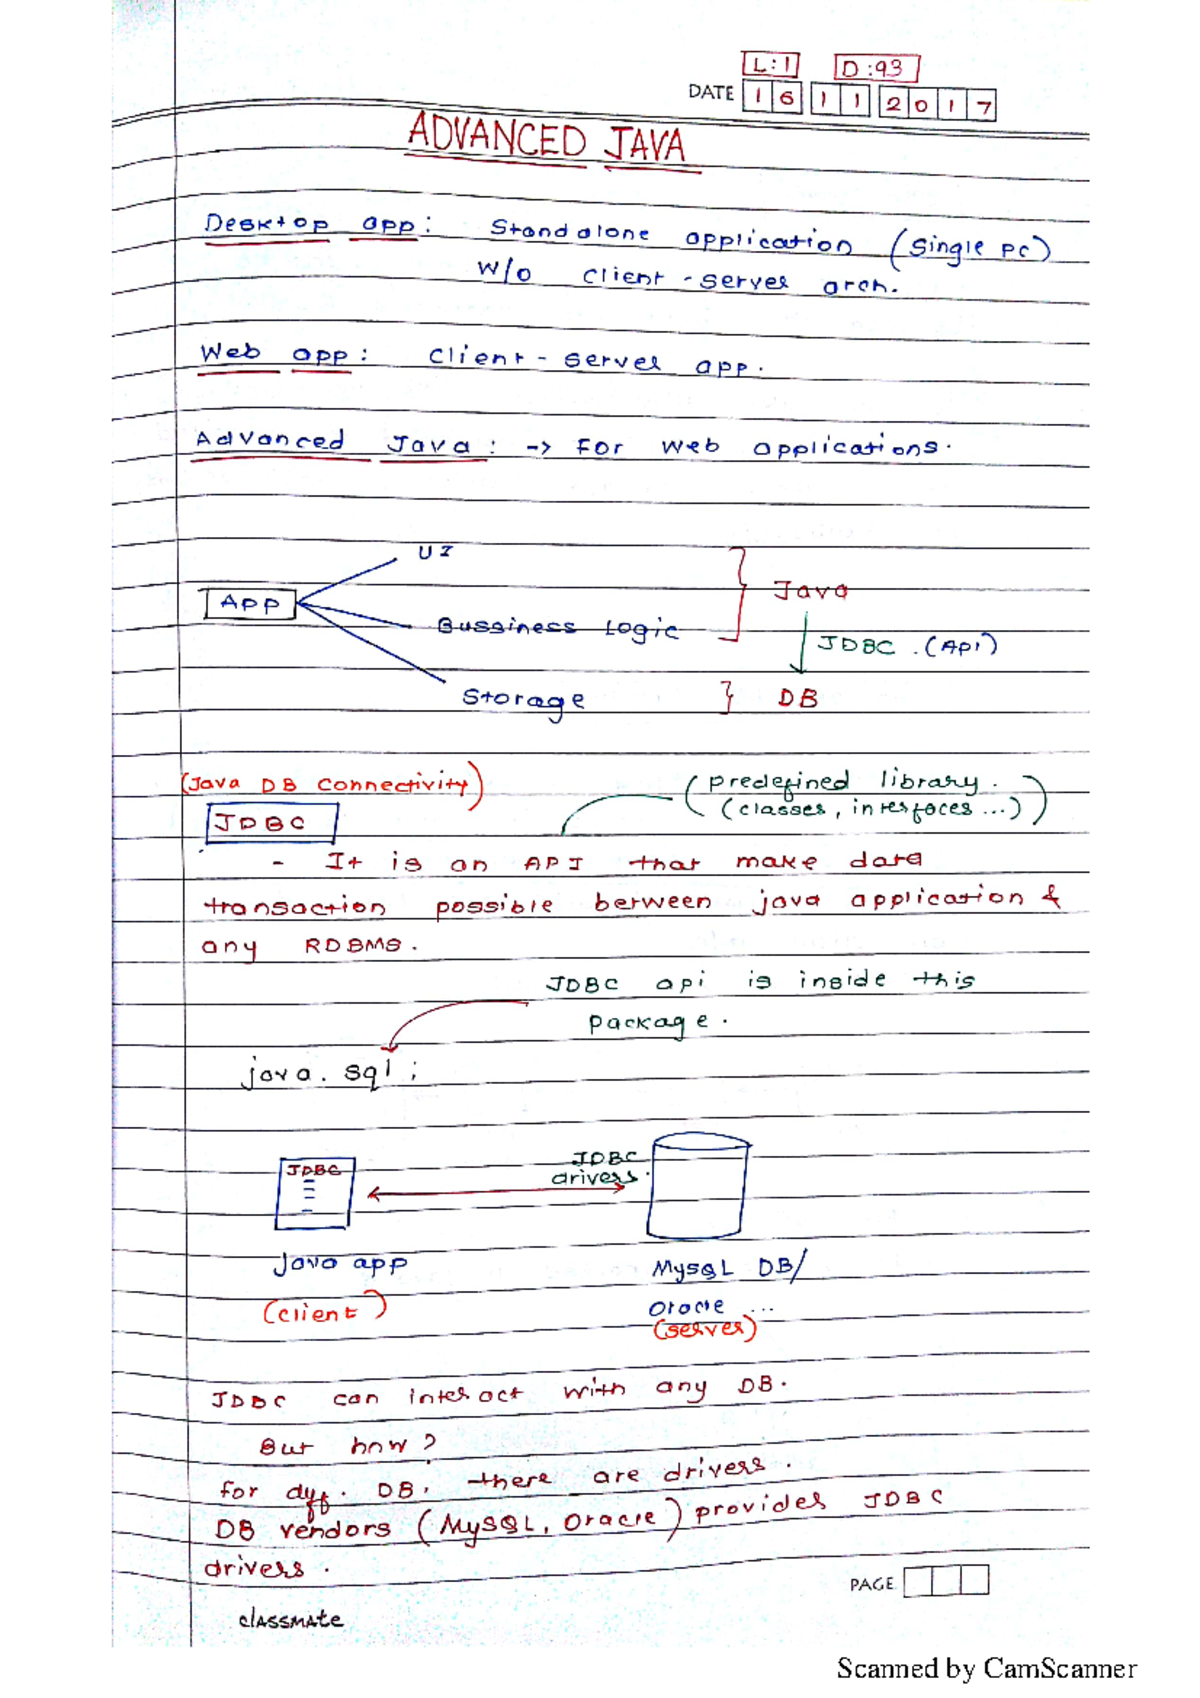 L:1 D:93
DATE 16 11 2017
ADVANCED JAVA
Desktop app: Standalone application (single PC)
W/o client-server arch.
Web app: client-server app.
Advanced Java: -> For web applications.
UI
App
Java
Bussiness Logic
JDBC.(Api)
Storage
DB
(Java DB connectivity)
(predefined library.
(classes, interfaces ...))
JDBC
- It is an API that make data
transaction possible between java application &
any RDBMS.
JDBC api is inside this
package.
java.sql;
JDBC
JDBC
drivers.
Java app
MySQL DB/
(client)
Oracle ...
(server)
JDBC can interact with any DB.
But how?
for dyf. DB, there are drivers.
DB vendors (MySQL, Oracle) provides JDBC
drivers.
PAGE
classmate
Scanned by CamScanner